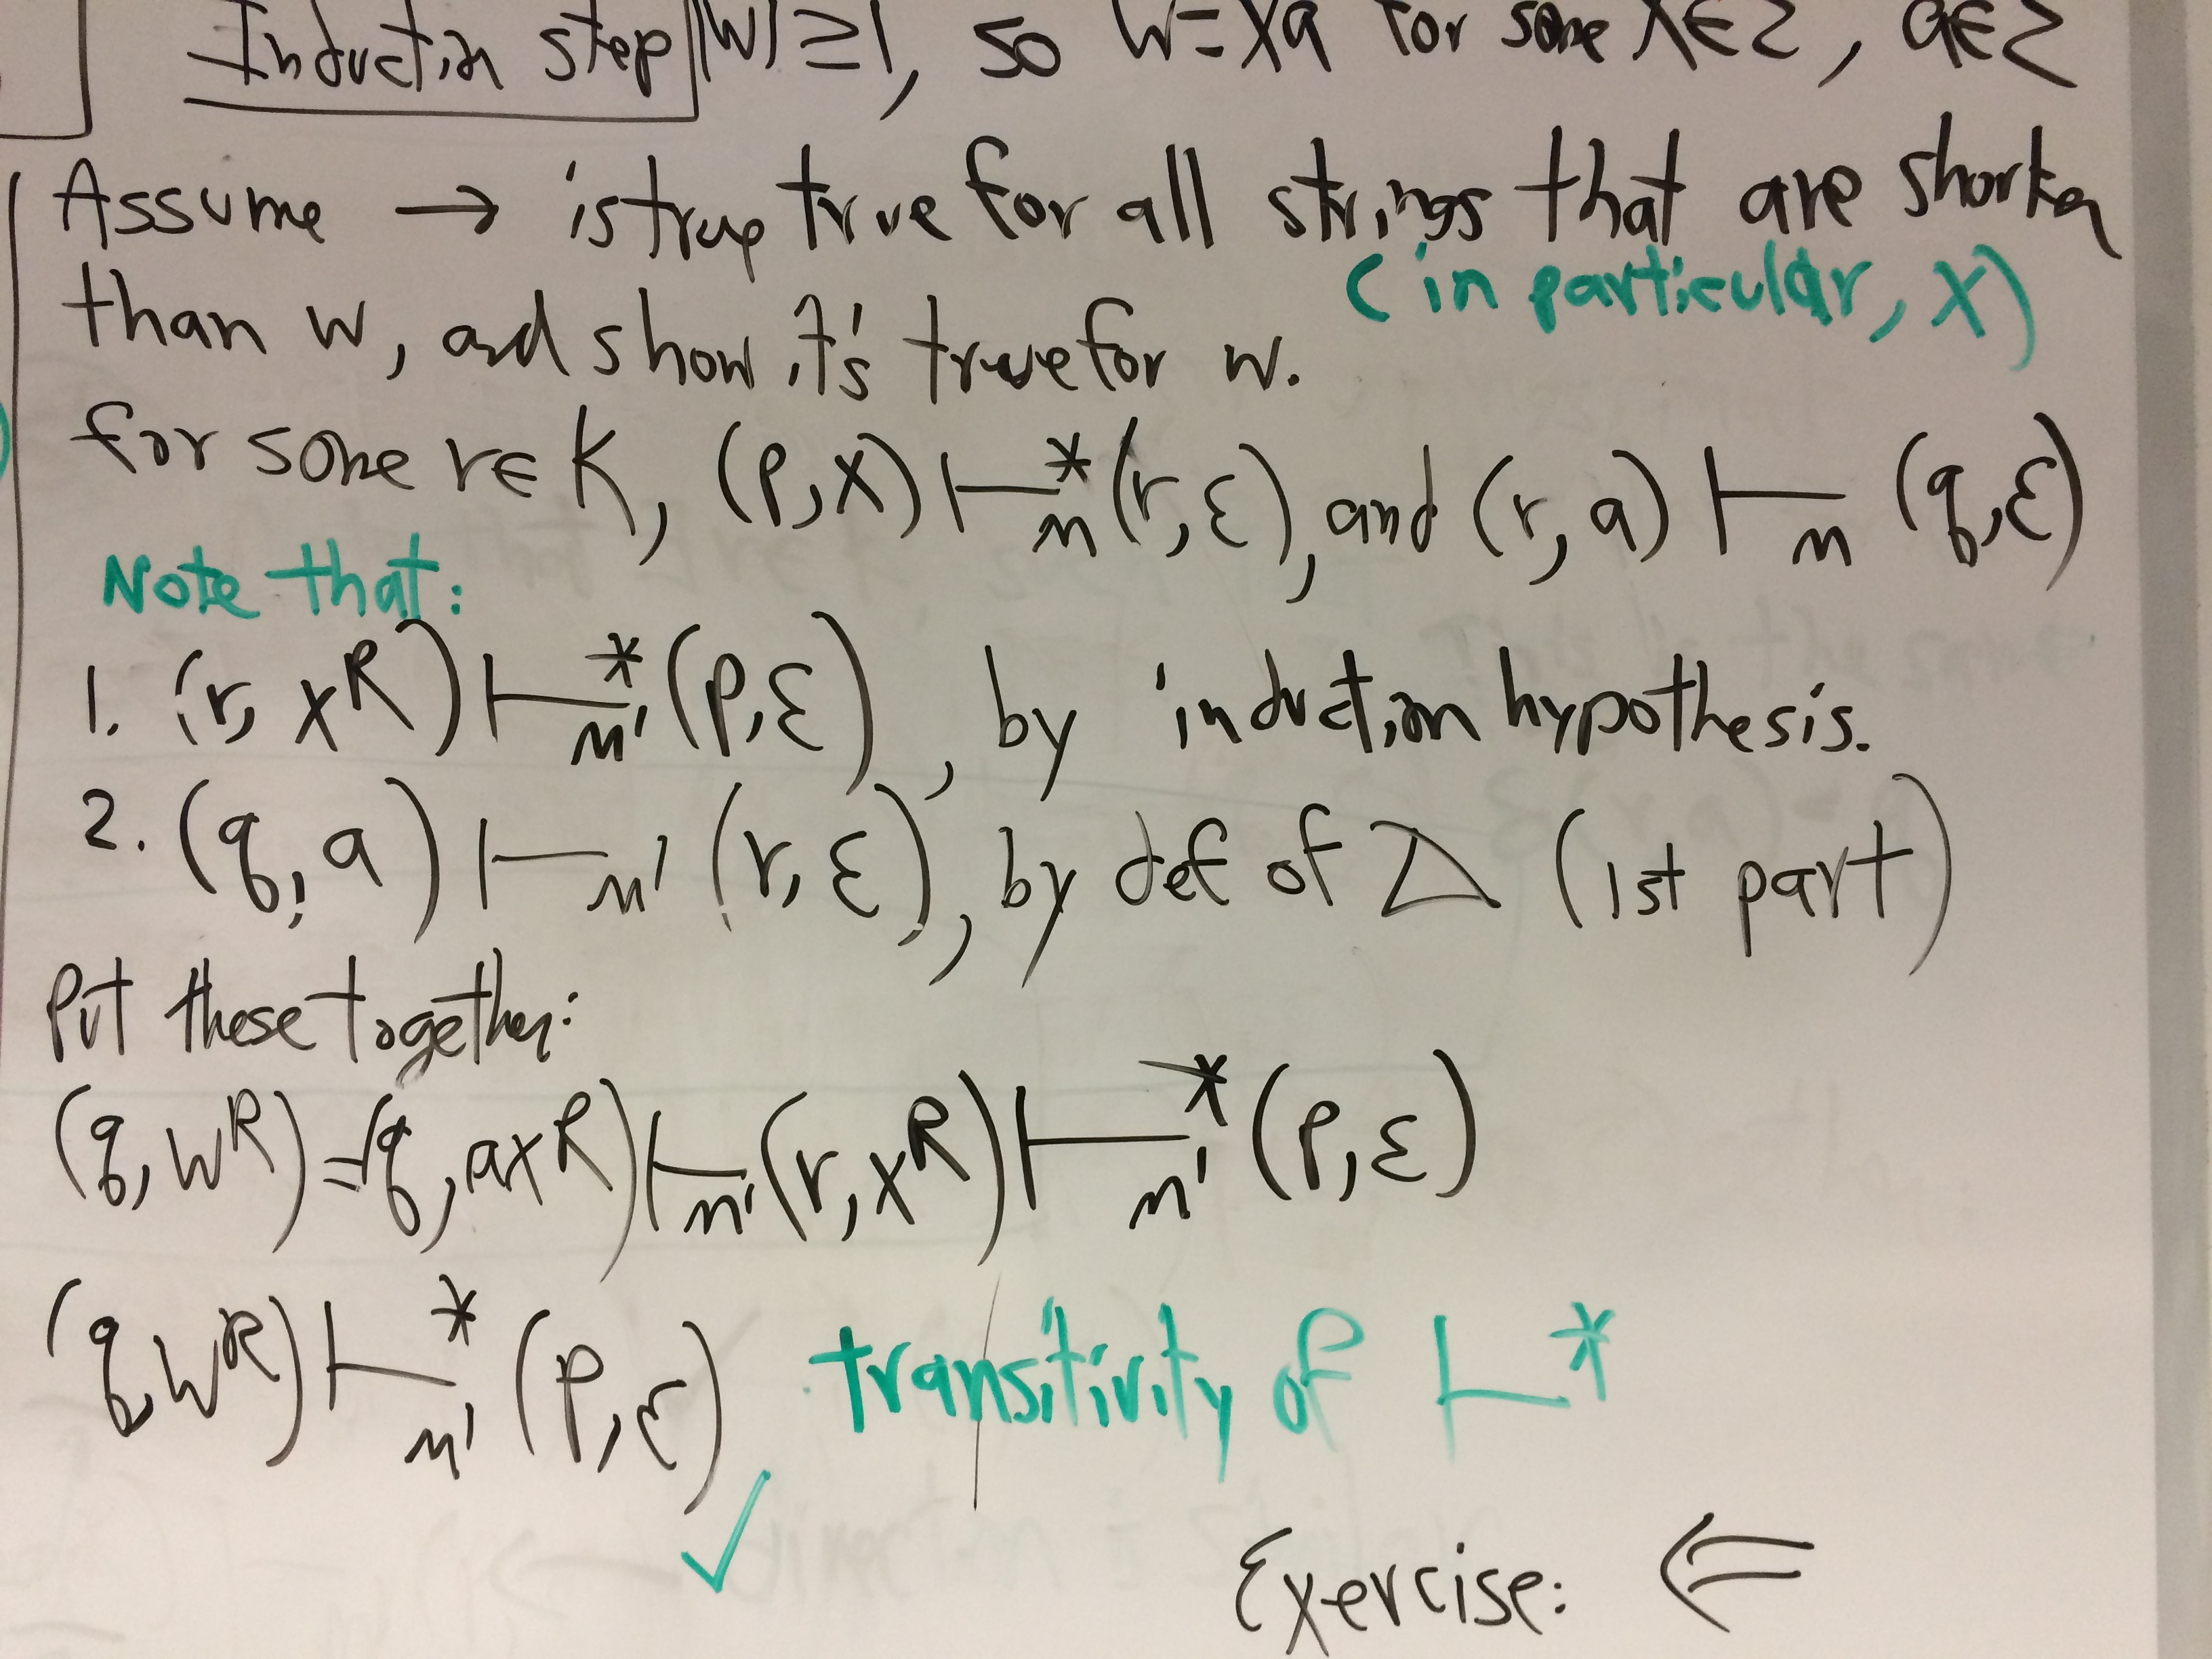 Induction step |W| ≥ 1, so W = Xa for some X ∈ Σ, a ∈ Σ
Assume → is true true for all strings that are shorter
(in particular, X)
than W, and show it's true for W.
for some r ∈ K, (P, X) ⊢*M (r, ε), and (r, a) ⊢M (q, ε)
Note that:
1. (r, X^R) ⊢*M' (P, ε), by induction hypothesis.
2. (q, a) ⊢M' (r, ε), by def of Δ (1st part)
Put these together:
(q, W^R) = (q, aX^R) ⊢M' (r, X^R) ⊢*M' (P, ε)
(q, W^R) ⊢*M' (P, ε) transitivity of ⊢*
✓
Exercise: ⇐